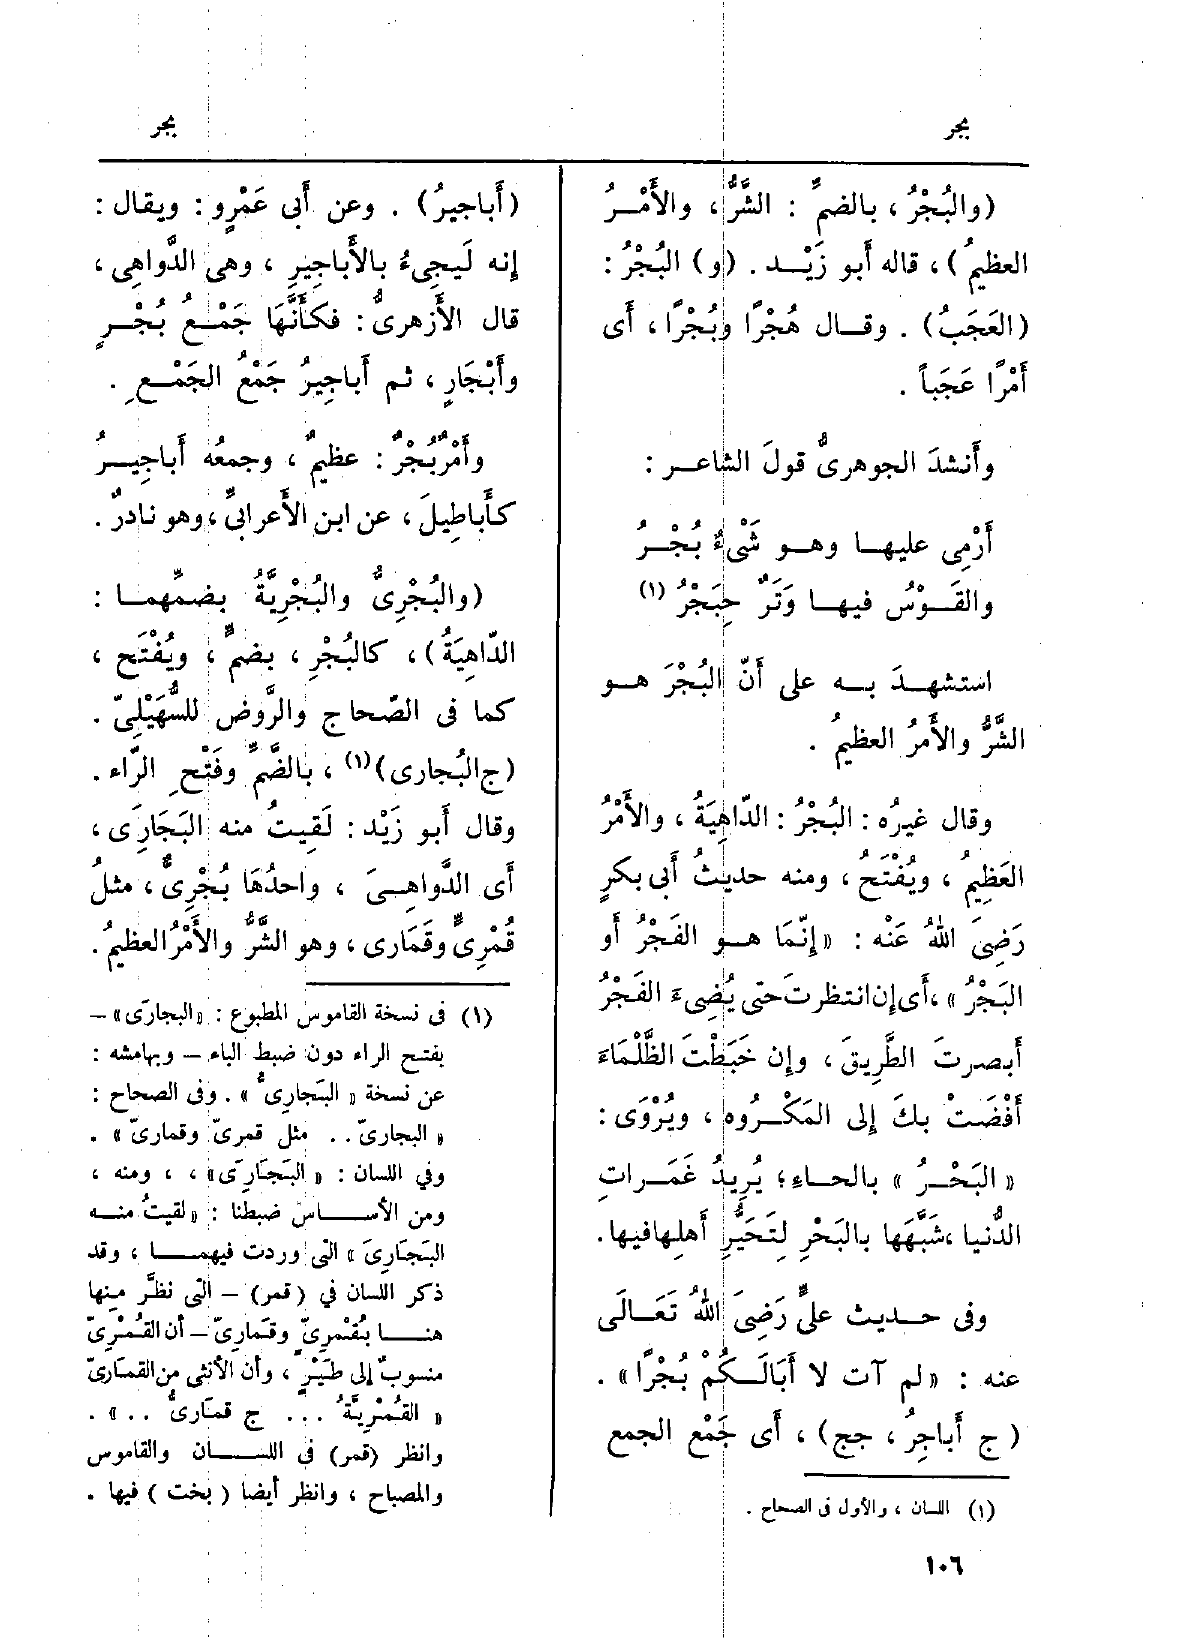 بجر
بجر
(والبُجْرُ، بالضمِّ : الشَّرُّ، والأَمْـرُ
العظيمُ)، قاله أَبو زَيْـد. (و) البُجْرُ:
(العَجَبُ) . وقـال هُجْرًا وبُجْرًا، أَى
أَمْرًا عَجَباً .
وأَنشدَ الجوهرىُّ قولَ الشاعـر :
أَرْمِى عليهـا وهـو شَىْءٌ بُجْـرُ
والقَـوْسُ فيهـا وَتَرٌ حِبَجْرُ (١)
استشهـدَ بـه على أَنّ البُجْرَ هـو
الشَّرُّ والأَمرُ العظيمُ .
وقال غيرُه : البُجْرُ : الدّاهِيَةُ ، والأَمْرُ
العَظِيمُ ، ويُفْتَحُ ، ومنه حديثُ أَبى بكرٍ
رَضِىَ اللهُ عَنْه : «إِنّمَا هـو الفَجْرُ أَو
البَجْرُ»، أَى إِن انتظرتَ حتى يُضِىءَ الفَجْرُ
أَبصرتَ الطَّرِيقَ ، وإِن خَبَطْتَ الظَّلْمَاءَ
أَفْضَتْ بكَ إِلى المَكْـرُوه ، ويُرْوَى :
«البَحْـرُ» بالحـاءِ؛ يُرِيدُ غَمَـراتِ
الدُّنيا ،شَبَّهَها بالبَحْرِ لِتَحَيُّرِ أَهلِها فيها.
وفى حـديث علىٍّ رَضِىَ اللهُ تَعَـالَى
عنه : «لم آت لا أَبَالَـكُمْ بُجْرًا» .
(ج أَباجِرُ ، جج) ، أَى جَمْع الجمع
(١) اللسان ، والأول فى الصحاح .
١٠٦
(أَباجيرُ) . وعن أَبى عَمْرٍو : ويقال :
إِنه لَيجِىءُ بالأَباجِيرِ ، وهى الدَّواهِى ،
قال الأَزهرىُّ : فكأَنَّهَا جَمْـعُ بُجْـرٍ
وأَبْجَارٍ ، ثم أَباجِيرُ جَمْعُ الجَمْـعِ .
وأَمْرٌ بُجْرٌ : عظيمٌ ، وجمعُه أَباجِيـرُ
كأَباطِيلَ ، عن ابن الأَعرابىِّ ،وهو نادرٌ .
(والبُجْرِىُّ والبُجْرِيَّةُ بضمِّهمـا :
الدّاهِيَةُ) ، كالبُجْرِ ، بضمٍّ ، ويُفْتَح ،
كما فى الصّحاح والرَّوض للسُّهَيْلِىّ .
(ج البُجارى)(١) ، بالضَّمِّ وفَتْحِ الرّاء .
وقال أَبو زَيْد : لَقِيتُ منه البَجَارَى ،
أَى الدَّواهِـىَ ، واحدُهَا بُجْرِىٌّ ، مثلُ
قُمْرِىٍّ وقَمَارى ، وهو الشَّرُّ والأَمْرُ العظيمُ .
(١) فى نسخة القاموس المطبوع : «البجارَى» –
بفتح الراء دون ضبط الباء – وبهامشه :
عن نسخة «البَجارِىُّ» . وفى الصحاح :
«البجارىّ .. مثل قمرىّ وقمارىّ» .
وفي اللسان : «البَجَارِىَ» ، ، ومنه ،
ومن الأســاس ضبطنا : «لقيتُ منـه
البَجَارِىَ» التى وردت فيهمـــا ، وقد
ذكر اللسان في (قمر) – التى نظَّر منها
هنــا بقُمْرِىّ وقَمارِىّ – أن القُمْرِىّ
منسوبٌ إلى طَيْرٍ ، وأن الأنثى من القمارىّ
«القُمْرِيَّةُ ... ج قمَارىُّ ..» .
وانظر (قمر) فى اللســان والقاموس
والمصباح ، وانظر أيضا (بخت) فيها .